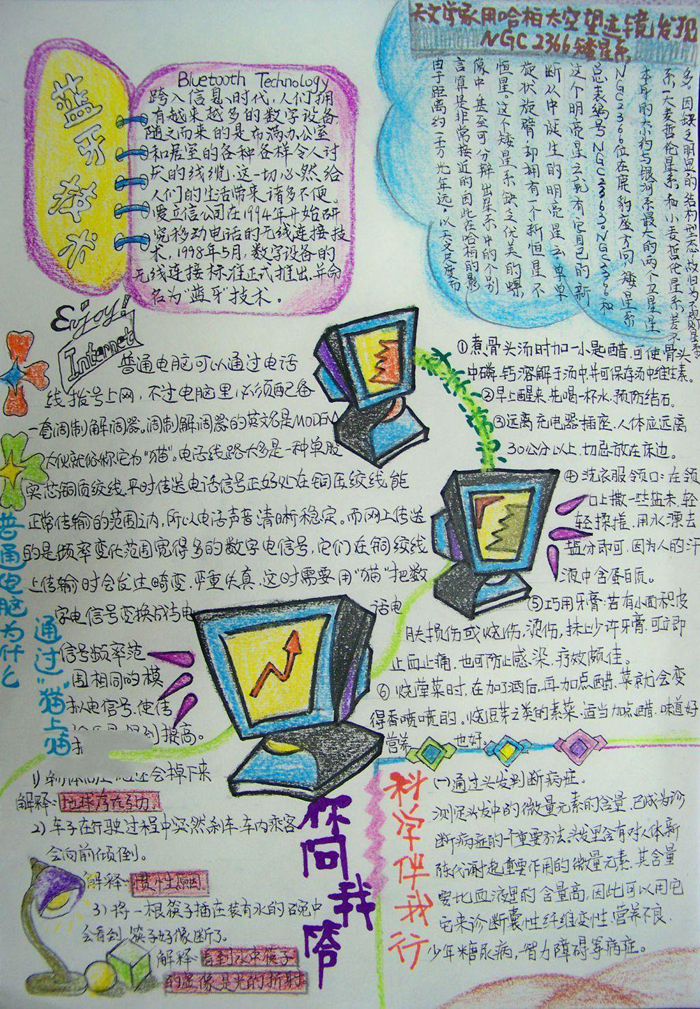 蓝牙技术
Bluetooth Technology
跨入信息时代，人们拥
有越来越多的数字设备
随之而来的是布满办公室
和居室的各种各样令人讨
厌的线缆，这一切必然给
人们的生活带来诸多不便。
爱立信公司在1994年开始研
究移动电话的无线连接技
术，1998年5月，数字设备的
无线连接标准正式推出，并命
名为"蓝牙"技术。
天文学家用哈柏太空望远镜发现
NGC2366矮星系
本身的大小约与银河系最大的两个卫星星
NGC2366位在鹿豹座方向 矮星系
总表编号NGC2363。NGC2366和
这个明亮星云氣有它自己的新
断从中诞生的明亮星云 虽单
旋状旋臂，却拥有一个新恒星不
恒星。这个矮星系缺乏优美的螺
像中，甚至可分辨出星系中的个别
言算是非常接近的因此在哈柏的影
由于距离约一千万光年远，以天文尺度而
Enjoy!
Internet
普通电脑为什么
通过"猫"上
普通电脑可以通过电话
线拨号上网，不过电脑里必须配备
一套调制解调器。调制解调器的英文名是MODEM
大伙就俗称它为"猫"。电话线路大多是一种单股
实芯铜质绞线，平时传送电话信号正好处在铜压绞线能
正常传输的范围之内，所以电话声音清晰稳定。而网上传送
的是频率变化范围宽得多的数字电信号，它们在铜绞线
上传输时会发生畸变，严重失真，这时需要用"猫"把数
字电信号变换成与电话电
信号频率范
围相同的模
拟电信号，使传
①煮骨头汤时加一小匙醋，可使骨头
中磷、钙溶解于汤中，并可保存汤中维生素。
②早上醒来，先喝一杯水，预防结石。
③远离充电器插座，人体应远离
30公分以上，切忌放在床边。
④洗衣服领口：在领
口上撒一些盐末，轻
轻揉搓，用水漂去
盐分即可，因为人的汗
液中含蛋白质。
⑤巧用牙膏：若有小面积皮
肤损伤或烧伤、烫伤，抹上少许牙膏，可立即
止血止痛，也可防止感染，疗效颇佳。
⑥烧荤菜时，在加了酒后，再加点醋，菜就会变
得香喷喷的，烧豆芽之类的素菜，适当加点醋，味道好
营养也好。
你问我答
还会掉下来
解释：地球存在引力
2）车子在行驶过程中突然刹车，车内乘客
会向前倾倒。
解释：惯性原因
3）将一根筷子插在装有水的碗中
会看到筷子好像断了。
解释：看到水中筷子
的虚像是光的折射
科学伴我行
（一）通过头发判断病症。
测定头发中的微量元素的含量，已成为诊
断病症的一个重要方法。头发里含有对人体新
陈代谢起重要作用的微量元素，其含量
要比血液里的含量高，因此可以用它
它来诊断囊性纤维变性、营养不良、
少年糖尿病、智力障碍等病症。